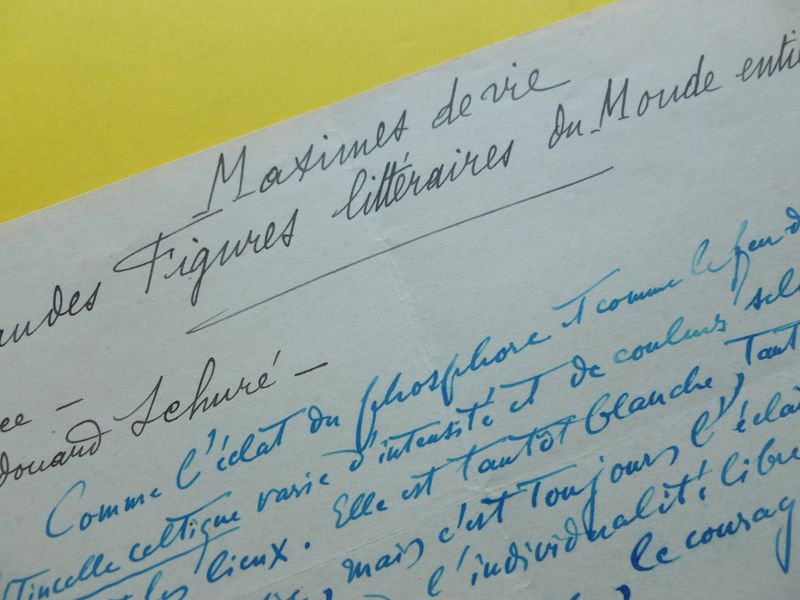 Maximes de vie
andes Figures littéraires du Monde enti
ce –
douard Schuré –
Comme l'éclat du phosphore et comme le feu d
tincelle celtique varie d'intensité et de couleurs sel
les lieux. Elle est tantôt blanche, tant
, mais c'est toujours l'éclai
l'individualité libre
le courag